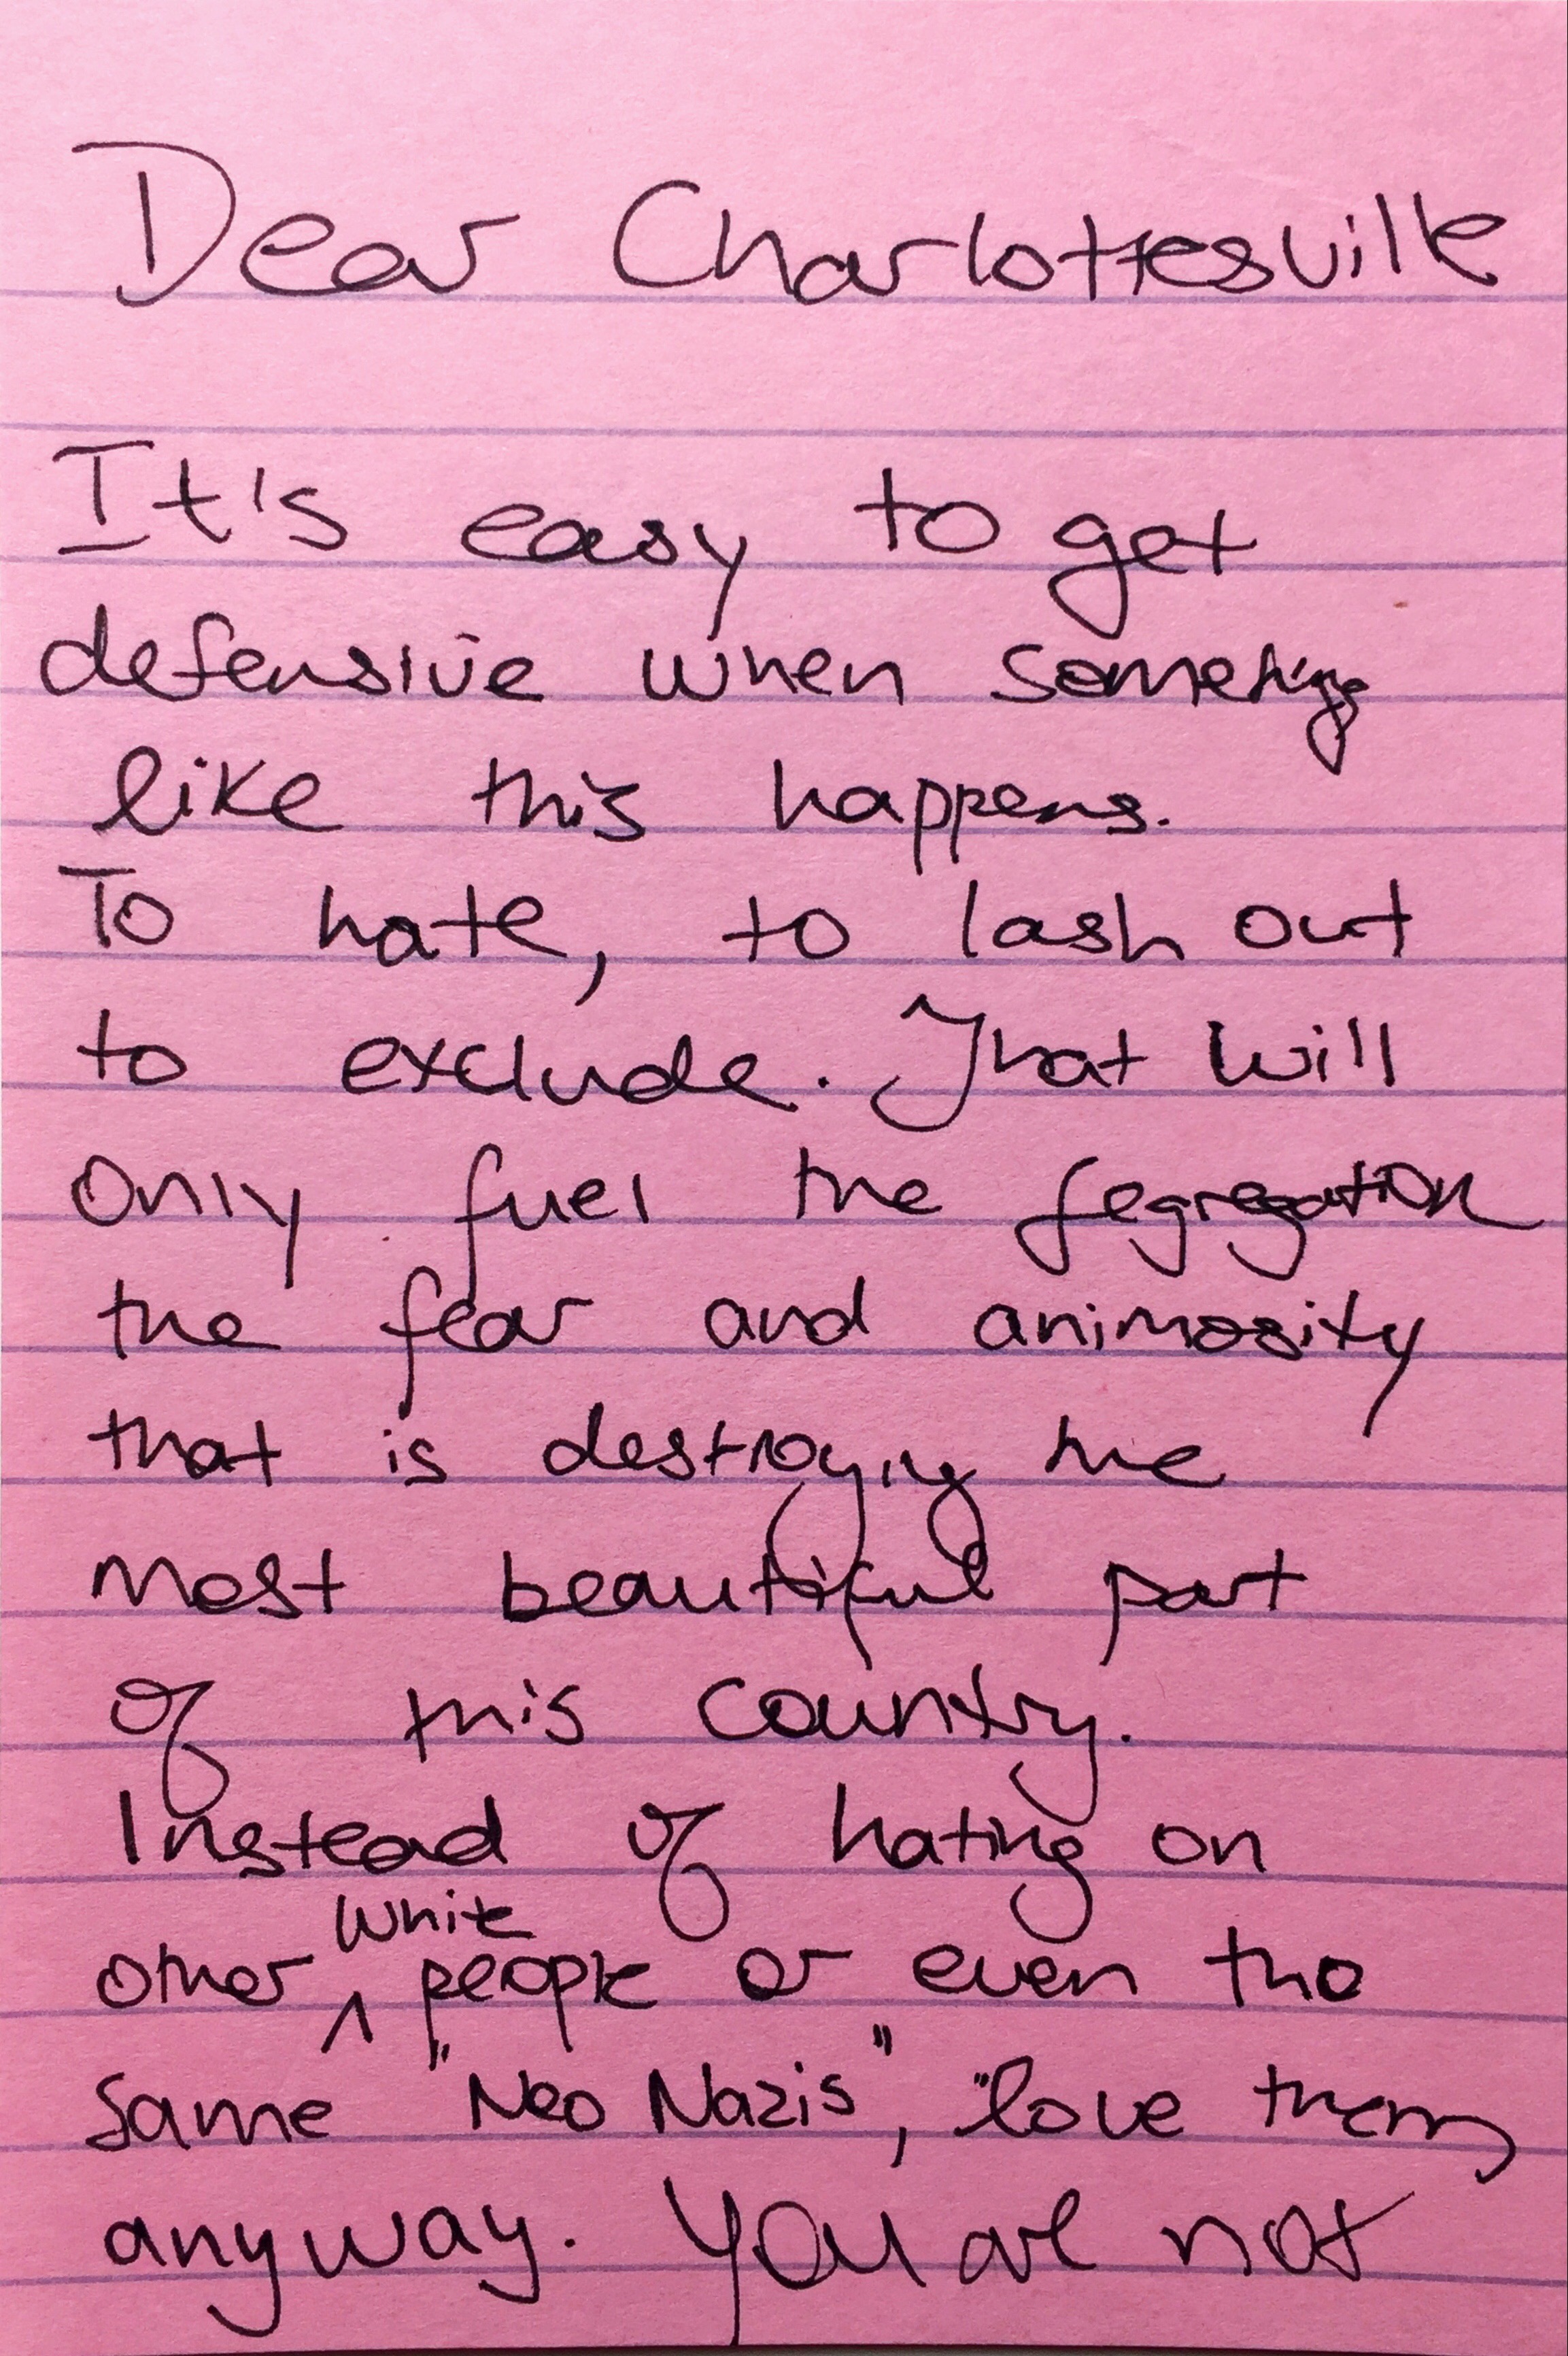 Dear Charlottesville
It's easy to get
defensive when something
like this happens.
To hate, to lash out
to exclude. That will
only fuel the segregation
the fear and animosity
that is destroying the
most beautiful part
of this country.
Instead of hating on
other white people or even the
same "Neo Nazis", love them
anyway. You are not